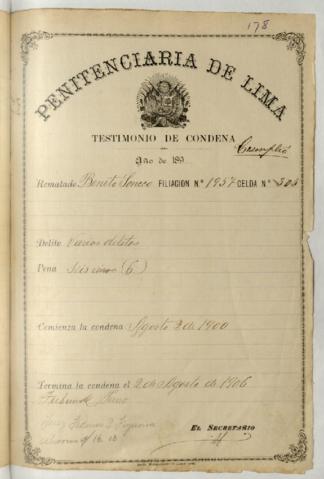 178
PENITENCIARIA DE LIMA
TESTIMONIO DE CONDENA
Cumplió
Año de 189
Rematado Benito FILIACION N.º 1957 CELDA N.º 303
Delito Varios delitos
Pena Seis años (6)
Comienza la condena Agosto 2 de 1900
Termina la condena el 2 de Agosto de 1906
Tribunal Puno
EL SECRETARIO